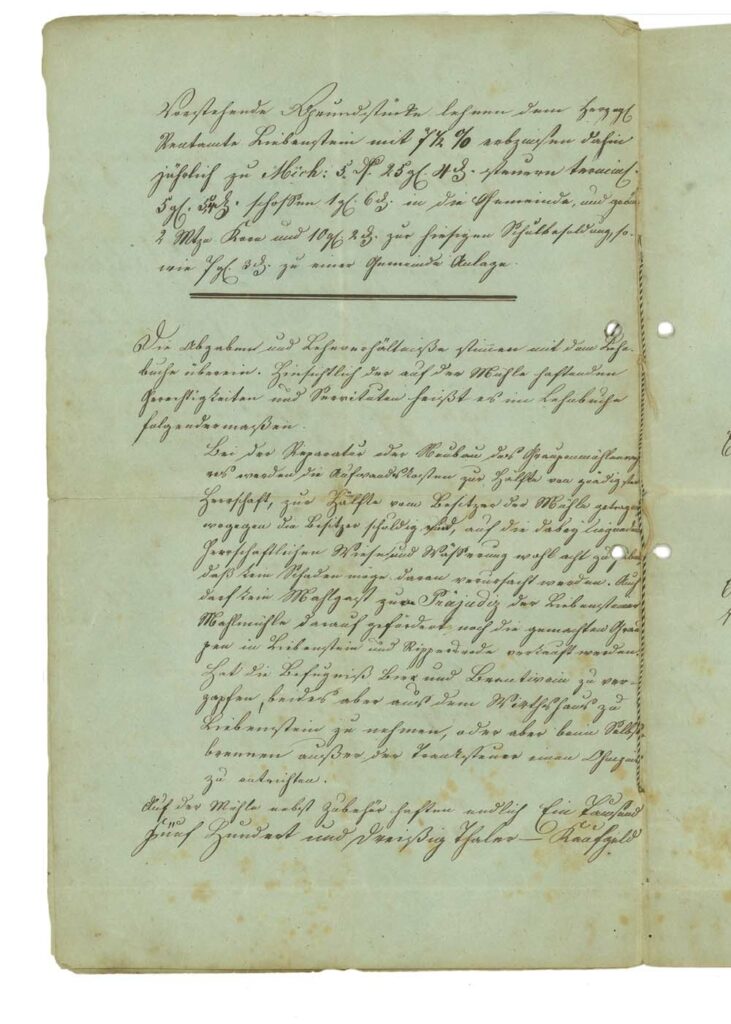 Vorstehende Grundstücke lehnen dem Herzogl.
Rentamte Liebenstein mit 7½ % erbzinsen dahin
jährlich zu Mich: 5. 25 gl. 4 d. steuern terminl.
5 gl. schossen 1 gl. 6 d. in die Gemeinde, und
2 Mtzn Korn und 10 gl. 2 d. zur hiesigen Schulbesoldung, so-
wie 7 gl. 3 d. zu einer Gemeinde Anlage.
Die Abgaben und Lehnverhältniße stimmen mit dem Lehn-
buche überein. Hinsichtlich der auf der Mühle haftenden
Gerechtigkeiten und Servituten heißt es im Lehnbuche
folgendermaßen.
Bei der Reparatur oder Neubau des
werden die Aufwandskosten zur Hälfte von gnädigster
Herrschaft, zur Hälfte vom Besitzer der Mühle getragen
wogegen die Besitzer schuldig sind, auf die dabey liegenden
Herrschaftlichen Wiesen und Wässerung wohl acht zu
daß kein Schaden möge daran verursacht werden. Auch
darf kein Mahlgast zum Präjudiz der Liebensteiner
Mahlmühle darauf gefördert noch die gemachten Grau-
pen in Liebenstein und Rippersrode verkauft werden.
Hat die Befugniß Bier und Brantwein zu ver-
zapfen, beides aber aus dem Wirthshaus zu
Liebenstein zu nehmen, oder aber beim Selbst-
brennen außer der Tranksteuer einen
zu entrichten.
Auf der Mühle nebst Zubehör haften endlich Ein Tausend
Fünf Hundert und Dreißig Thaler — Kaufgeld